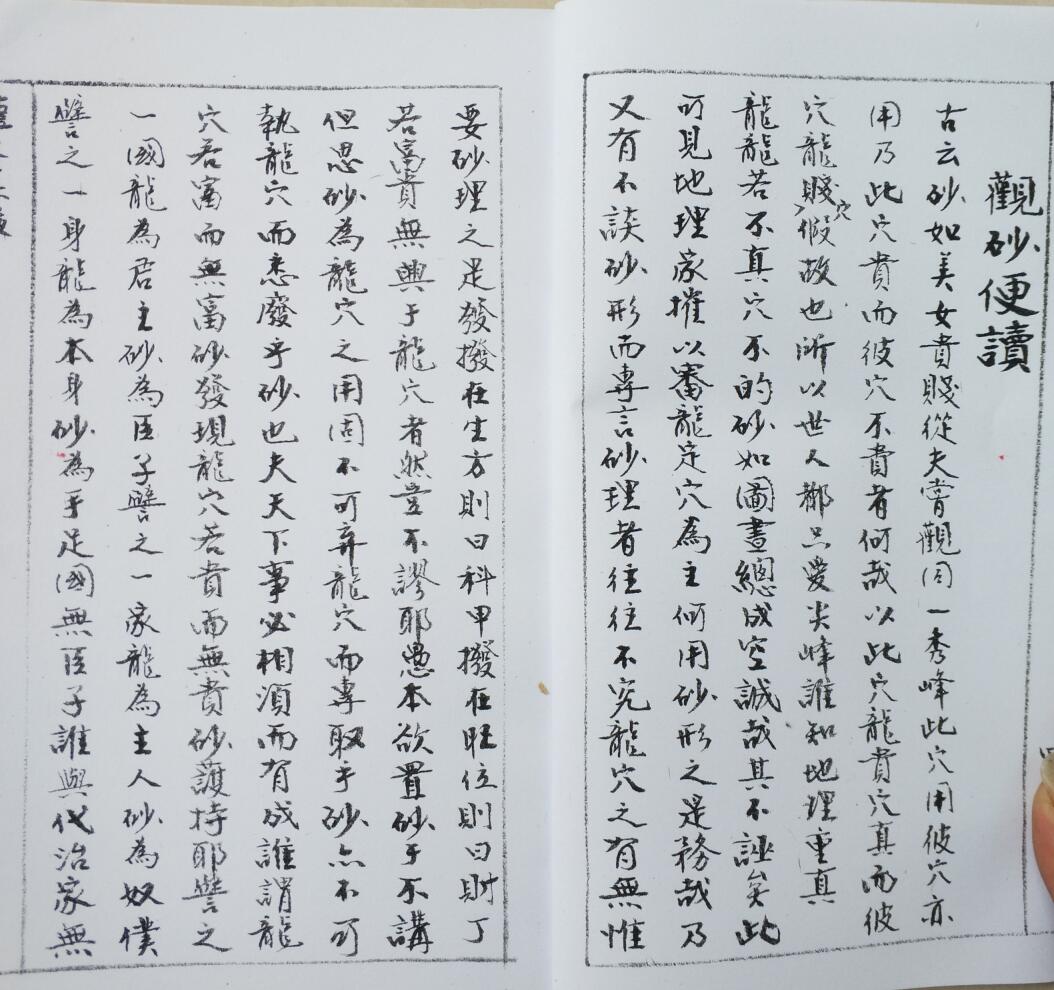 觀砂便讀
古云砂如美女貴賤從夫嘗觀同一秀峰此穴用彼穴亦
用乃此穴貴而彼穴不貴者何哉以此穴龍貴穴真而彼
穴龍賤穴假故也所以世人都只愛尖峰誰知地理重真
龍龍若不真穴不的砂如圖畫總成空誠哉其不誣矣此
可見地理家摧以審龍定穴為主何用砂形之是務哉乃
又有不談砂形而專言砂理者往往不究龍穴之有無惟
要砂理之是發撥在生方則曰科甲撥在旺位則曰財丁
若富貴無與于龍穴者然豈不謬耶愚本欲置砂于不講
但思砂為龍穴之用固不可棄龍穴而專取乎砂亦不可
執龍穴而悉廢乎砂也夫天下事必相須而有成誰謂龍
穴若富而無富砂發現龍穴若貴而無貴砂護持耶譬之
一國龍為君主砂為臣子譬之一家龍為主人砂為奴僕
譬之一身龍為本身砂為手足國無臣子誰與代治家無